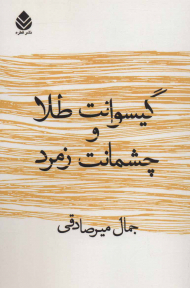 نشر قطره
گیسوانت طلا
و
چشمانت زمرد
جمال میرصادقی